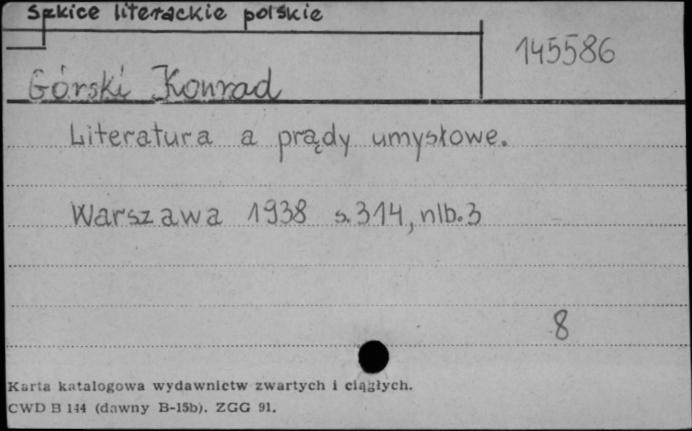 Szkice literackie polskie
145586
Górski Konrad
Literatura a prądy umysłowe.
Warszawa 1938 s. 314, nlb. 3
8
Karta katalogowa wydawnictw zwartych i ciągłych.
CWD B 144 (dawny B-15b). ZGG 91.